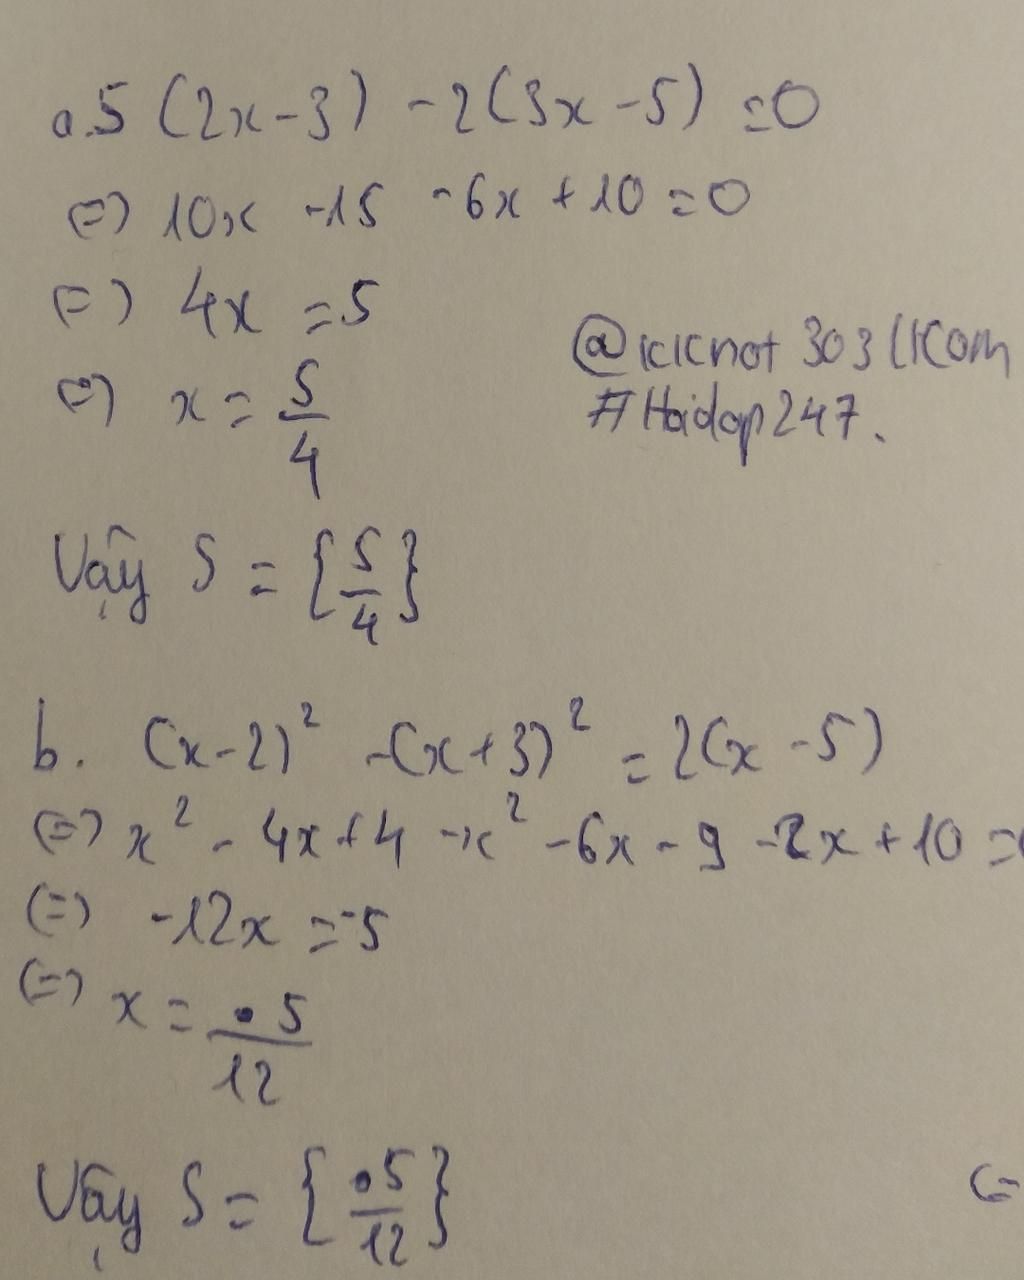 a. 5 (2x-3) - 2(3x-5) = 0
(=) 10x -15 -6x +10 = 0
(=) 4x = 5
(=) x = 5/4
@kknot303lkom
#Hoidap247.
Vậy S = {5/4}
b. (x-2)² -(x+3)² = 2(x-5)
(=) x² - 4x+4 -x² -6x - 9 -2x +10 =
(=) -12x = -5
(=) x = 5/12
Vậy S = {5/12}
(=